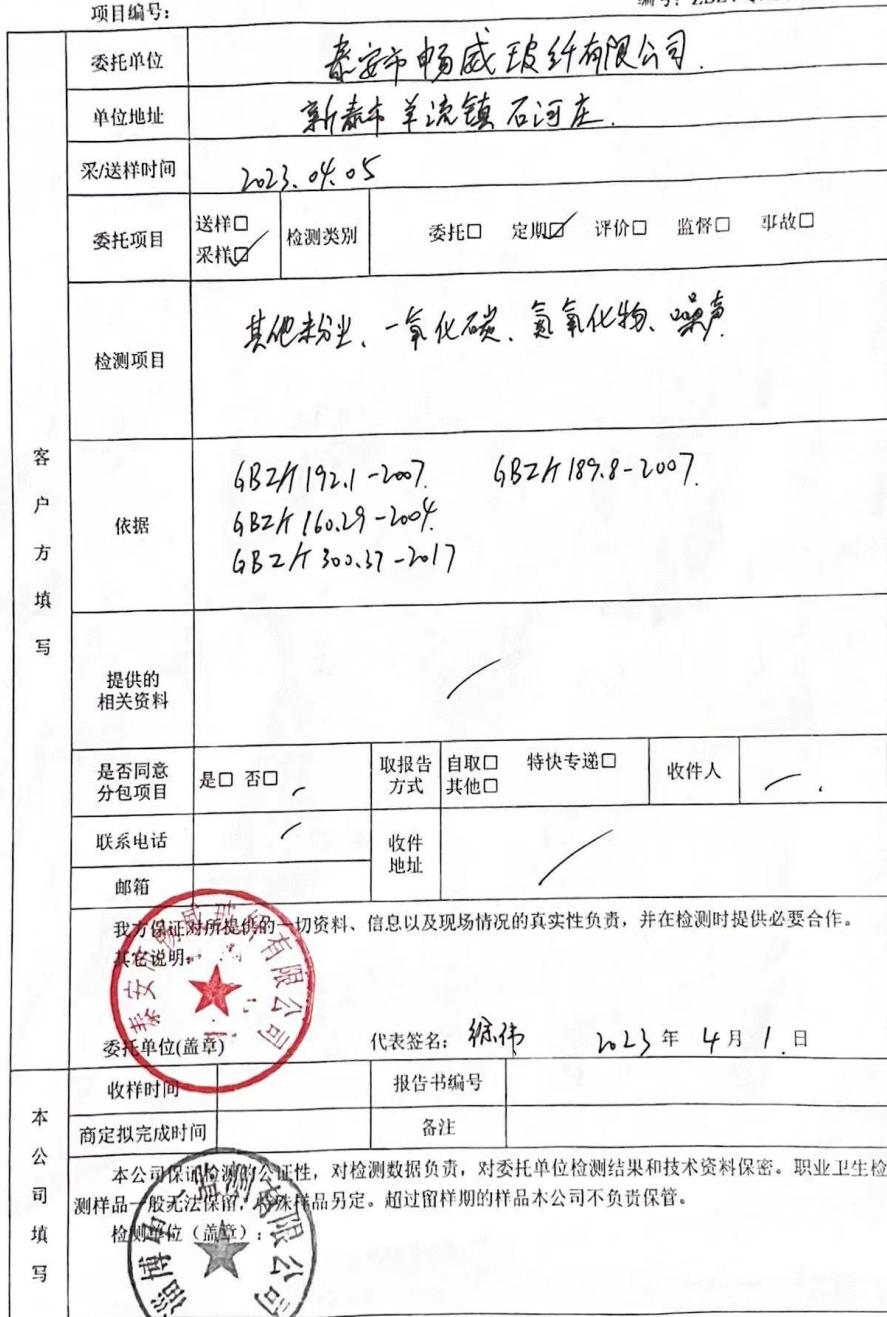 项目编号：
编号：
委托单位 泰安市畅威玻纤有限公司.
单位地址 新泰市羊流镇石河庄.
采/送样时间 2023.04.05
委托项目 送样□ 采样☑ 检测类别 委托□ 定期☑ 评价□ 监督□ 事故□
检测项目 其他粉尘、一氧化碳、氮氧化物、噪声.
客户方填写
依据 GBZ/T 192.1-2007. GBZ/T 189.8-2007.
GBZ/T 160.29-2004.
GBZ/T 300.37-2017
提供的
相关资料 /
是否同意
分包项目 是□ 否□ /
取报告
方式 自取□ 特快专递□
其他□
收件人 /
联系电话 /
收件
地址 /
邮箱
我方保证对所提供的一切资料、信息以及现场情况的真实性负责，并在检测时提供必要合作。
其它说明：
泰安市畅威玻纤有限公司
委托单位(盖章) 代表签名：徐伟 2023年4月1日
本公司填写
收样时间 报告书编号
商定拟完成时间 备注
本公司保证检测的公证性，对检测数据负责，对委托单位检测结果和技术资料保密。职业卫生检
测样品一般无法保留，特殊样品另定。超过留样期的样品本公司不负责保管。
检测单位（盖章）：
淄博 有限公司